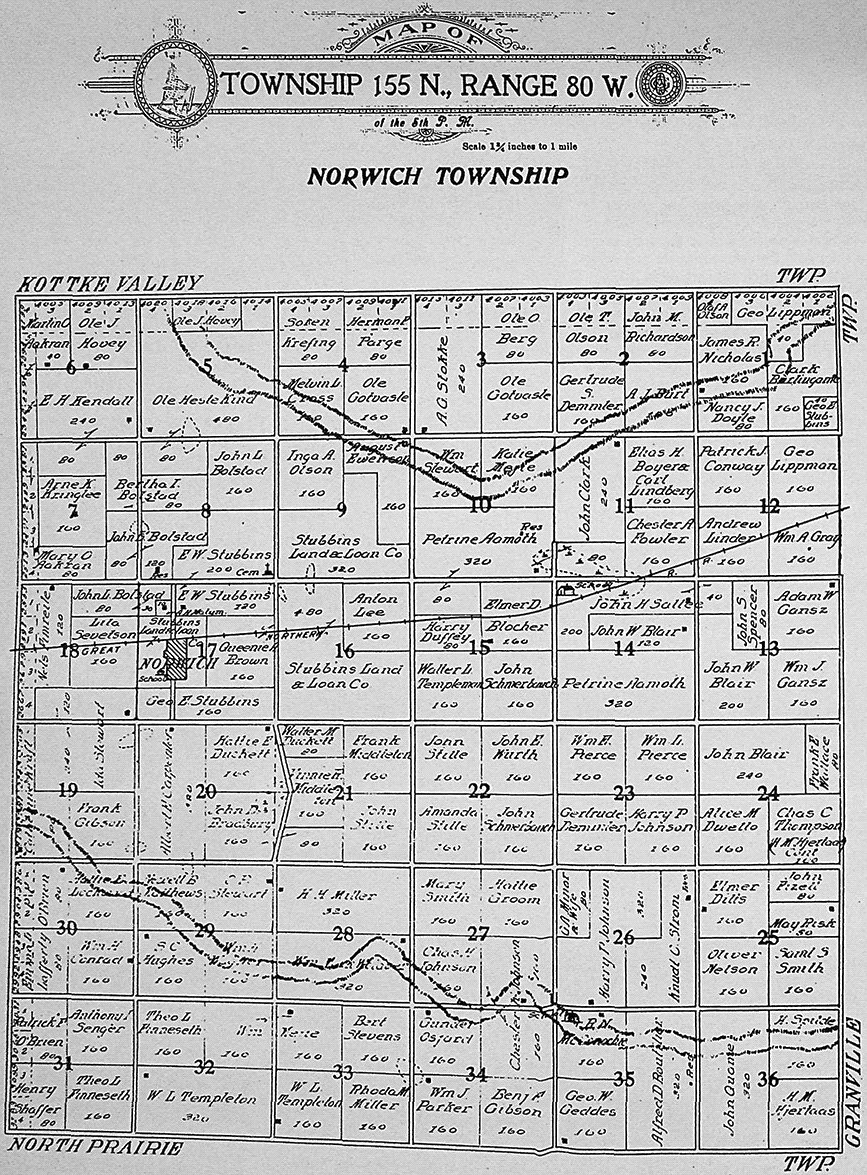 MAP OF
TOWNSHIP 155 N., RANGE 80 W.
of the 5th P. M.
Scale 1¾ inches to 1 mile
NORWICH TOWNSHIP
KOTTKE VALLEY
TWP.
TWP
Ole J.
Hovey
80
40
6
E H Kendall
240
Ole J. Hovey
5
Ole Heste Kind
480
Soren
Krefting
80
Herman P
Parge
80
4
Melvin L.
Cross
160
Ole
Gotvasle
160
A.G. Stokke
240
Ole O
Berg
80
3
Ole
Gotvasle
160
Ole T.
Olson
80
John M.
Richardson
80
2
Gertrude
S.
Demmler
160
A J Burt
Olson
Geo Lippman
James R.
Nicholas
160
40
1
Clark
Nancy J.
Doyle
80
160
40
Geo E
Stub-
bins
80
80
80
Arne K
Kringlee
160
7
Mary O
Aakran
80
Bertha I.
Bolstad
80
John L
Bolstad
160
8
John E Bolstad
80
120
Res
E W Stubbins
200
Cem
Inga A.
Olson
160
August
Ewerson
160
9
Stubbins
Land & Loan Co
320
Wm
Stewart
160
Katie
Moyle
160
10
Petrine Aamoth
320
Res
John Clark
240
Elias H
Boyer &
Carl
Lindberg
160
11
Chester A
Fowler
160
80
Patrick J.
Conway
160
Geo
Lippman
160
12
Andrew
Linder
Wm A Gray
160
Nels Himreite
120
John L Bolstad
80
Lita
Sevetson
160
18
GREAT
E W Stubbins
120
Stubbins
17
NORWICH
School
Queenie H
Brown
160
Geo E. Stubbins
160
480
Anton
Lee
160
NORTHERN
16
Stubbins Land
& Loan Co
80
Harry
Duffey
80
Elmer D.
Blocher
160
15
Walter L
Templeman
160
John
Schmerbauch
160
School
John H Sattee
200
John W Blair
120
14
Petrine Aamoth
320
R.
40
John S
Spencer
80
Adam W
Gansz
160
13
John W
Blair
200
Wm J.
Gansz
160
120
240
Ida Stewart
19
Frank
Gibson
160
Albert H Carpenter
320
Hattie E
Duckett
160
20
John D
Bradbury
160
Walter M
Duckett
80
Frank
Middleton
160
21
80
John
Stille
160
John
Stille
160
John E.
Wurth
160
22
Amanda
Stille
160
John
Schmerbauch
160
Wm E.
Pierce
160
Wm L.
Pierce
160
23
Gertrude
Demmler
160
Harry P
Johnson
160
John Blair
240
Frank E
Wallace
80
24
Alice M
Dwello
160
Chas C
Thompson
(H M Hjertaas
Cont
160
Hattie L
Lockhart
160
30
Lafferty O'Brien
80
Wm H
Conrad
160
Jezell B
Matthews
160
C F
Stewart
160
29
S C
Hughes
160
Wm H
160
H H Miller
320
28
320
Mary
Smith
160
Hattie
Groom
160
27
Chas H
Johnson
160
Chester K Johnson
160
160
G A Minor
& Wife
80
Harry P Johnson
240
320
26
Knudt C. Strom
160
Elmer
Dilts
160
John
Pizell
80
May Risk
80
25
Oliver
Nelson
160
Saml S
Smith
160
Patrick P
O'Brien
80
Anthony J
Senger
160
31
Henry
Shaffer
80
Theo L
Finneseth
160
Theo L
Finneseth
160
Wm
160
32
W L Templeton
320
Kerie
160
Bert
Stevens
160
33
W L
Templeton
160
Rhoda M
Miller
160
Gunder
Osford
160
34
Wm J
Parker
160
Benj F
Gibson
160
160
35
Geo. W.
Geddes
160
Alfred D Boutilier
320
Res
John Quame
320
H. Spude
160
36
H. M.
Hjertaas
160
NORTH PRAIRIE
TWP.
GRANVILLE